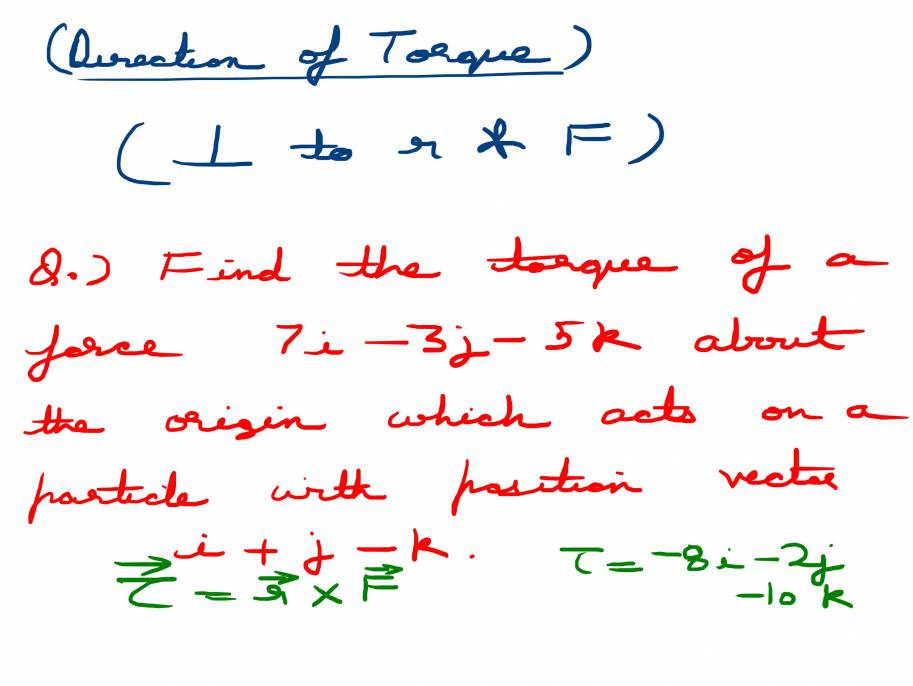 (Direction of Torque)
(⊥ to r & F)
Q.) Find the torque of a
force 7i - 3j - 5k about
the origin which acts on a
particle with position vector
i + j - k.
τ⃗ = r⃗ × F⃗
τ = -8i - 2j
-10k